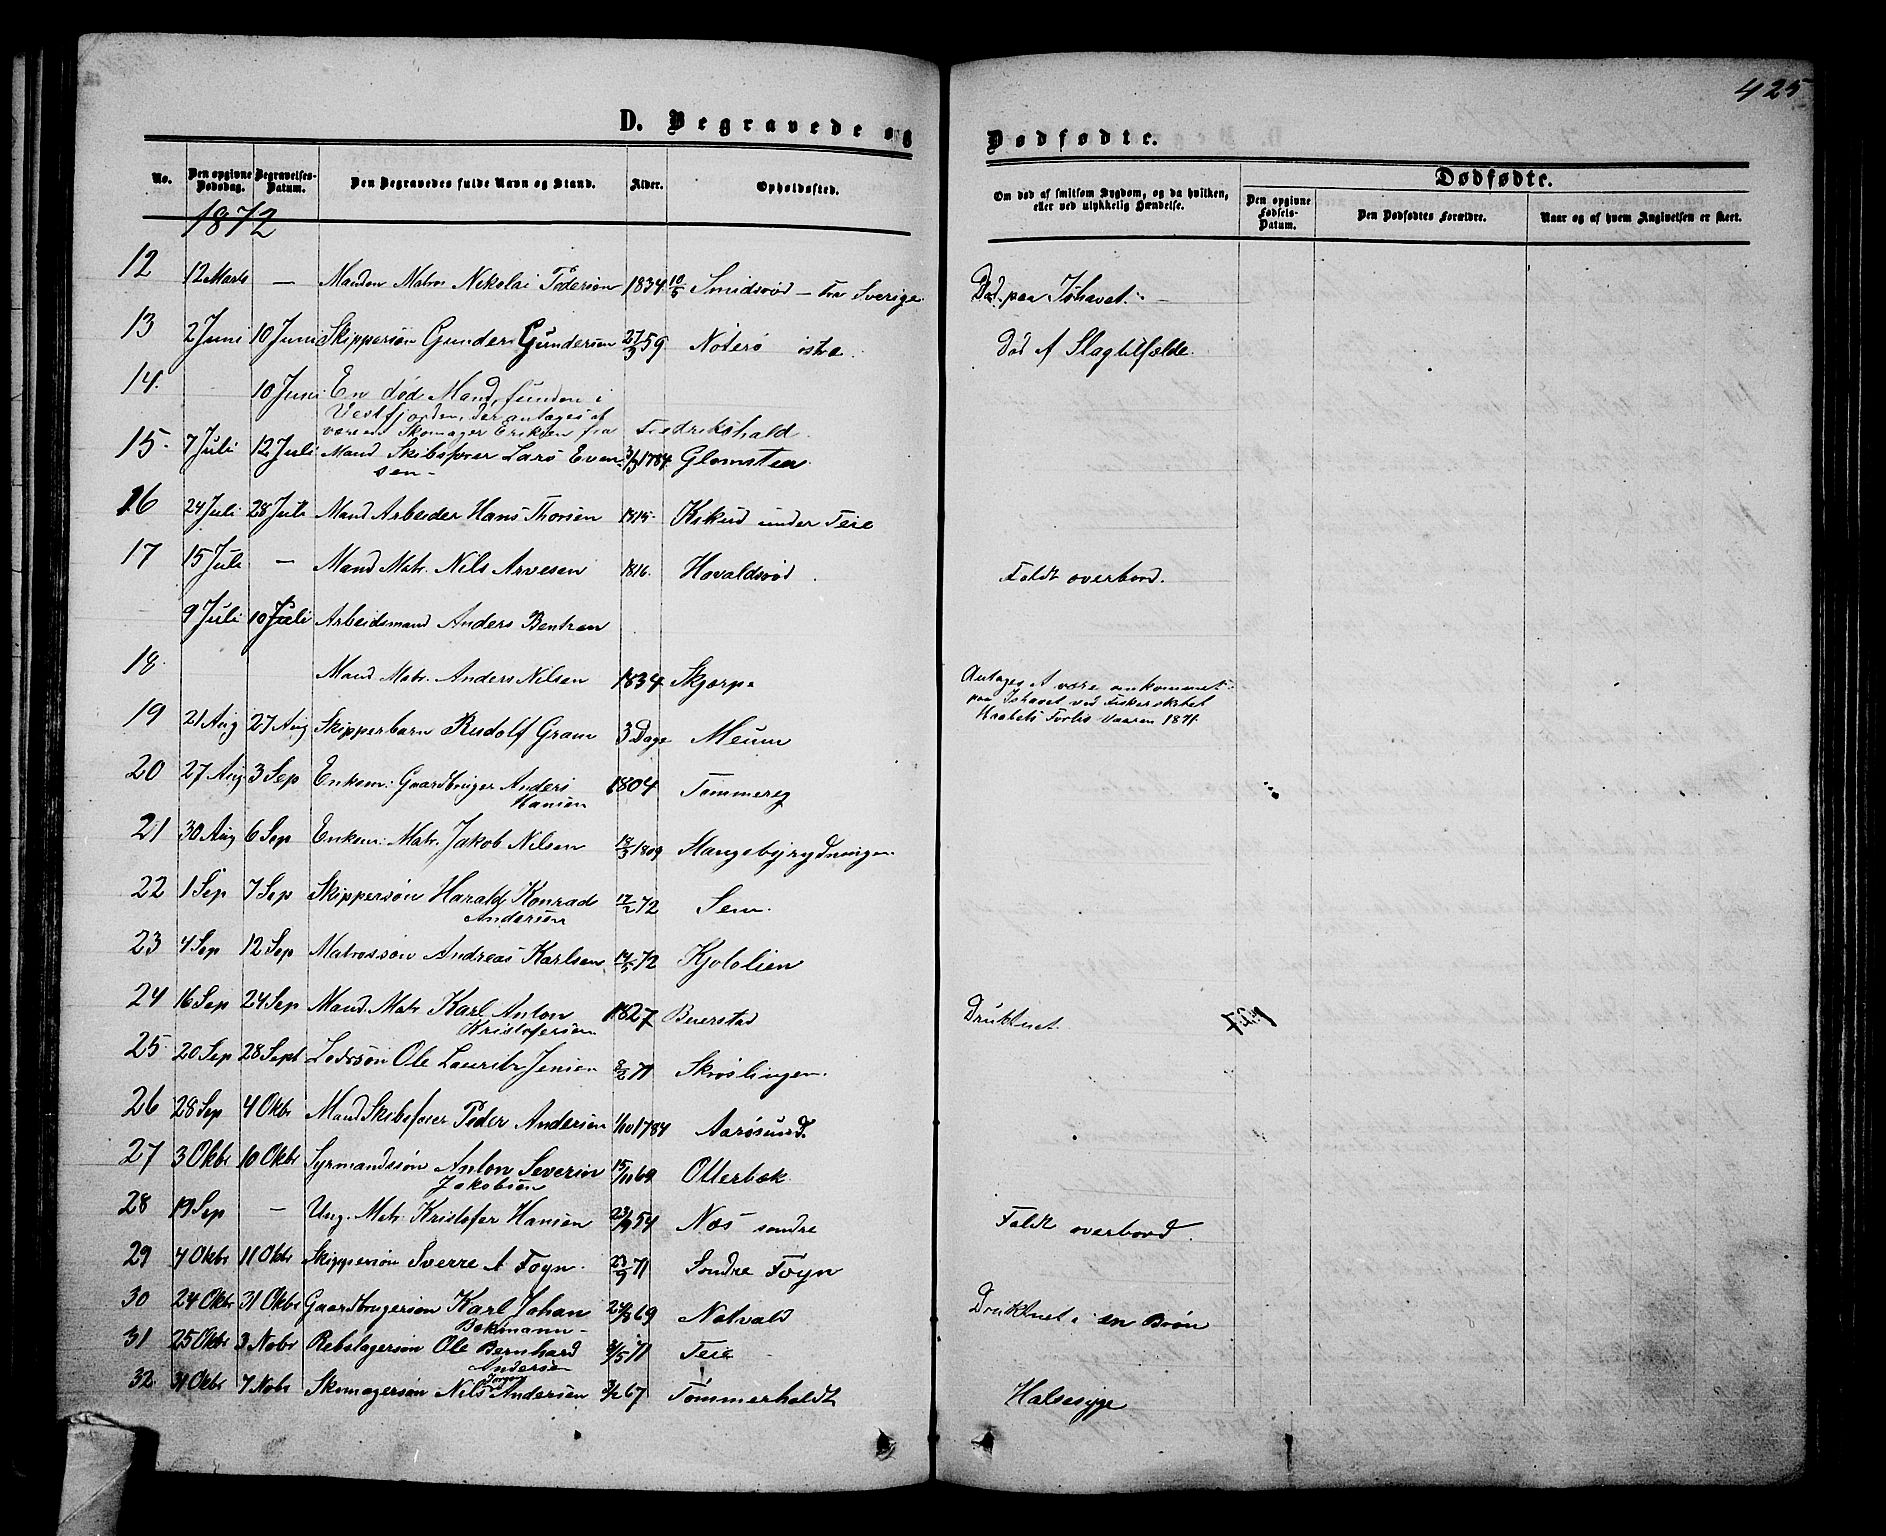 425
D. Begravede og Dødfødte.
No. Den opgivne Dødsdag. Begravelses-Datum. Den Begravedes fulde Navn og Stand. Alder. Opholdssted. Om død af smitsom Sygdom, og da hvilken, eller ved ulykkelig Hændelse. Dødfødte.
Den opgivne Fødsels-Datum. Den Dødfødtes Forældre. Naar og af hvem Angivelsen er skeet.
1872
12 12 Marts — Manden Matros Nikolai Pedersøn 1834 10/5 Smidsrød – fra Sverige Død paa Ishavet. –
13 2 Juni 10 Juni Skippersøn Gunder Gundersen 27/9 59 Nøterø østre. Død af Slagtilfælde.
14. 10 Juni En død Mand, funden i
Vestfjorden, der antages at
være en Skomager Eriksen fra Fredrikshald.
15. 7 Juli 12 Juli Mand Skibsfører Lars Even- 3/3 1784 Glomsten
sen –
16 24 Juli 28 Juli Mand Arbeider Hans Thorsen 1815. Kikud under Teie
17 15 Juli — Mand Matr. Nils Arvesen 1816. Hovaldsrød. Faldt overbord.
9 Juli 10 Juli Arbeidsmand Anders Bentzen
18. Mand Matr. Anders Nilsen 1834 Skjærpe Antages at være omkommet
paa Ishavet ved Fiskerskibet
Haabets Forlis Vaaren 1871.
19 21 Aug 27 Aug Skipperbarn Rudolf Gram 3 Dage Meum
20 27 Aug 3 Sep Enkem: Gaardbruger Anders 1804 Tømmereg
Hansen
21 30 Aug 6 Sep Enkem: Matr. Jakob Nilsen 1809 Mangebyrydningen.
22 1 Sep 7 Sep Skippersøn Harald Konrad 17/2 72 Sem.
Andersen
23 4 Sep 12 Sep Matrossøn Andreas Karlsen 14/5 72 Kjølolien
24 16 Sep 24 Sep Mand Matr Karl Anton 1827 Buerstad Druknet.
Kristofersen
25 20 Sep 28 Sept Lodssøn Ole Lauritz Jensen 8/2 71 Skrøslingen.
26 28 Sep 4 Oktbr Mand Skibsfører Peder Andersen 1/10 1784 Aarøsund.
27 3 Oktbr 10 Oktbr Syrmandssøn Anton Severin 15/11 69 Oterbæk
Jakobsen
28 19 Sep — Ung. Matr. Kristofer Hansen 23/9 54 Næs søndre Faldt overbord.
29 4 Oktbr 11 Oktbr Skippersøn Sverre A Foyn. 71 Søndre Foyn
30 24 Oktbr 31 Oktbr Gaardbrugersøn Karl Johan 69 Natvald Druknet i en Brøn
Bokmann –
31 25 Oktbr 3 Novbr Rebslagersøn Ole Bernhard 3/5 71 Teie –
Andersen
32 31 Oktbr 7 Novbr Skomagersøn Nils Andersen 3/2 67 Tømmerholdt Halsesyge